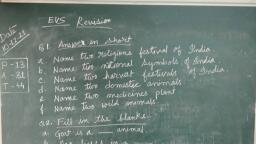 EVS Revision
Date
10.12.21
P - 13
A - 31
T - 44
Q1. Answer in short
a. Name two religious festival of India.
b. Name two national Symbols of India.
c. Name two harvest festivals of India.
d. Name two domestic animals
e. Name two medicines plant
f. Name two wild animals.
Q2. Fill in the blanks:-
a. Goat is a ___ animal